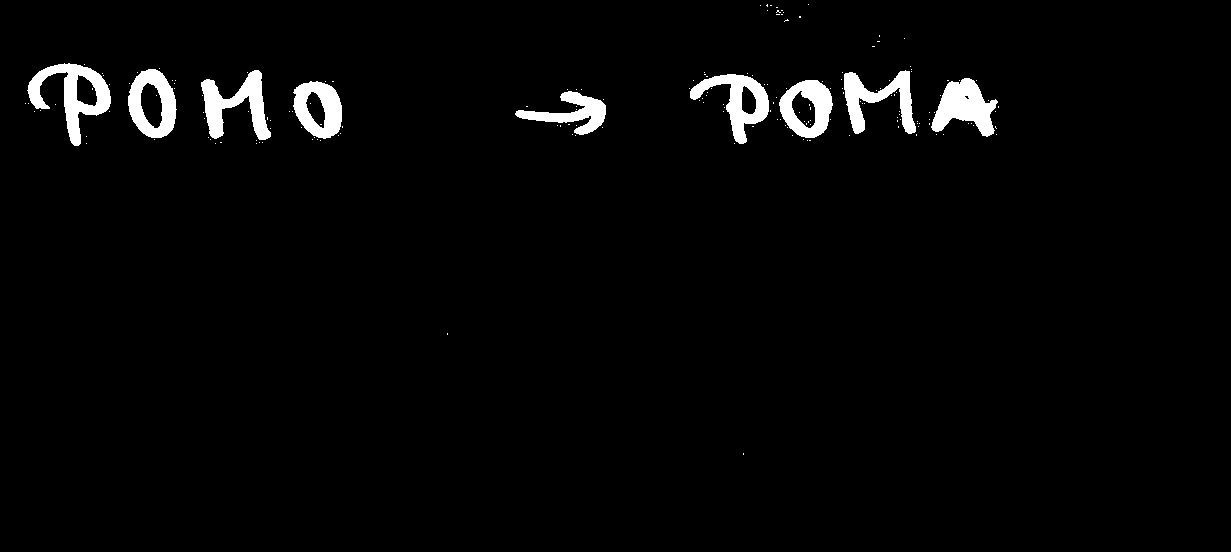 POMO → POMA